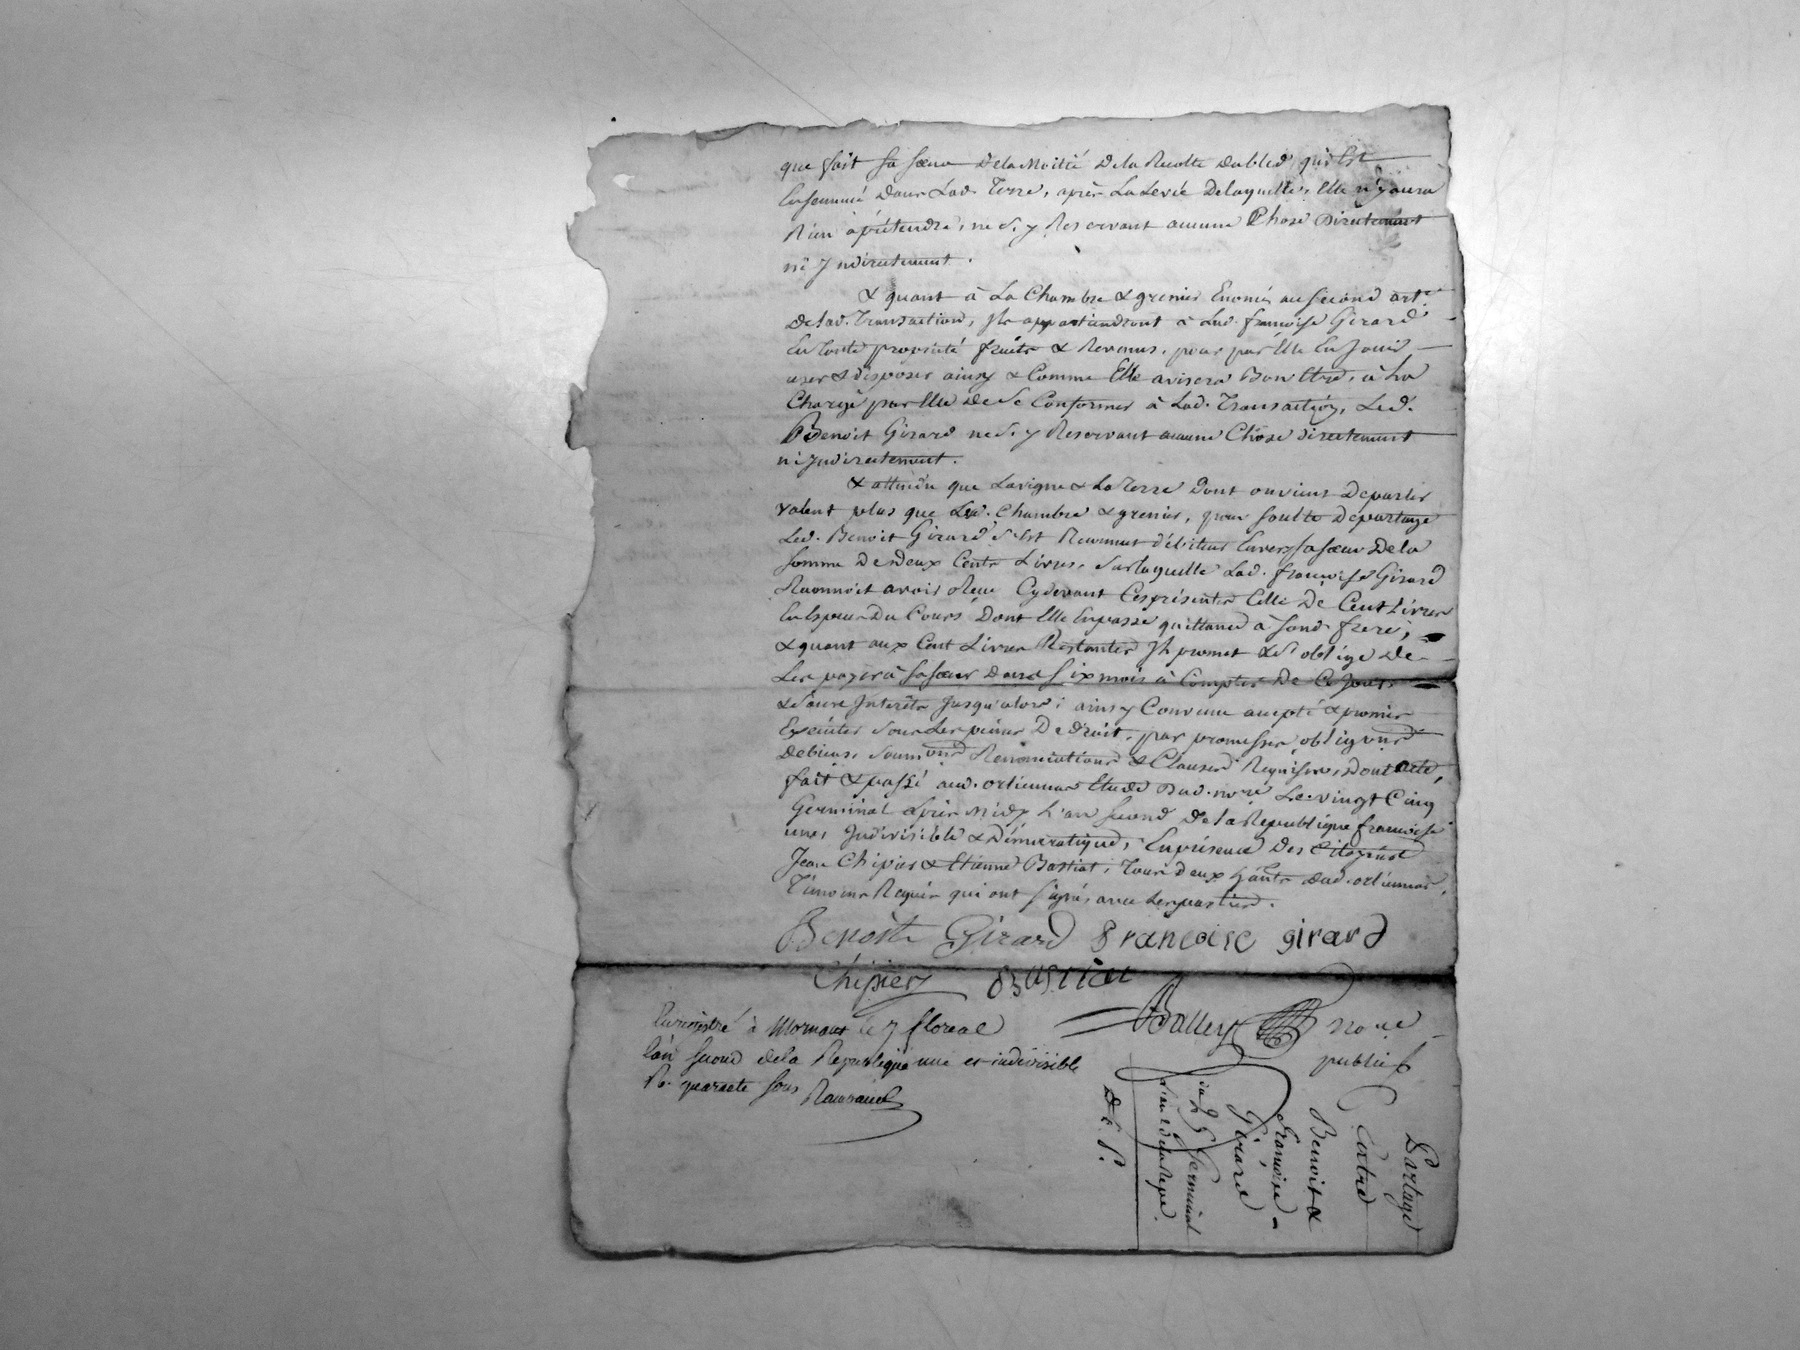 que fait sa sœur De la Moitié De la Recolte du bled qui Est
Ensemmé Dans Lad. Terre, après La Levée De laquelle, Elle n'y aura
Rien à prétendre, ne s'y Reservant aucune Chose Directement
ni Indirectement.
& quant à La Chambre & grenier Enoncés au second art.
De lad. Transaction, Ils appartiendront à Lad. françoise Girard
En toute propriété fruits & Revenus, pour par Elle En Jouir,
user & disposer ainsy & Comme Elle avisera Bon Etre, à La
Charge par Elle De Se Conformer à Lad. Transaction, Led.
Benoit Girard ne s'y Reservant aucune Chose directement
ni Indirectement.
& attendu que La vigne & La Terre Dont on vient De parler
valent plus que Lad. Chambre & grenier, pour soulte De partage
Led. Benoit Girard s'Est Reconnut débiteur Envers sa sœur De la
somme De Deux Cents Livres, sur laquelle Lad. françoise Girard
Reconnoit avoir Reçu Cydevant Ces présentes Celle De Cent Livres
En Especes Du Cours Dont Elle En passe quittance à Sond. frere,
& quant aux Cent Livres Restantes Il promet & s'oblige De
Les payer à sa sœur Dans Six mois à Compter De Ce Jour
& Sans Interêts Jusqu'alors; ainsy Convenu accepté & promis
Exécuter Sous Les peines De Droit, par promesses, obligons
De biens, Soumons Renonciations & Clauses Requises, Dont acte,
fait & passé aud. orlienas Etude Dud. nore Le vingt Cinq
Germinal après Midy L'an second De la Republique françoise
une, Indivisible & Démocratique, En présence Des Citoyens
Jean Chipier & Etienne Bastiat, Tous deux hants dud. orlienas,
Témoins Requis qui ont Signés avec Les parties.
Benoit Girard françoise girard
Chipier Bastiat
Balley nore
public
Enregistré à Mornant le 7 floreal
L'an second de la Republique une et indivisible
R. quarante sous
Partage
Entre
Benoit &
françoise
Girard
du 25 Germinal
L'an 2 de la Repe.